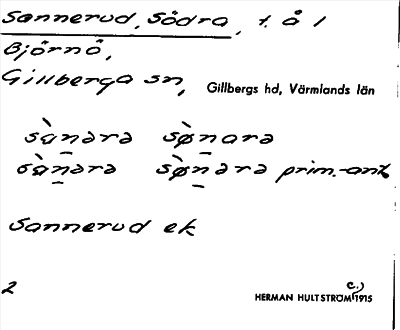 Sannerud, Södra, t. å 1
Björnö,
Gillberga sn,
Gillbergs hd, Värmlands län
sànərə sø̀nara
sànərə sø̀nərə prim.-ant.
Sannerud ek
2
HERMAN HULTSTRÖM c.) 1915